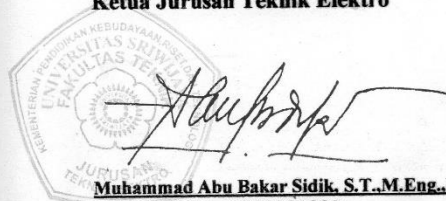 Ketua Jurusan Teknik Elektro
KEMENTERIAN PENDIDIKAN KEBUDAYAAN
UNIVERSITAS SRIWIJAYA
FAKULTAS TEKNIK
JURUSAN
Muhammad Abu Bakar Sidik, S.T.,M.Eng.,